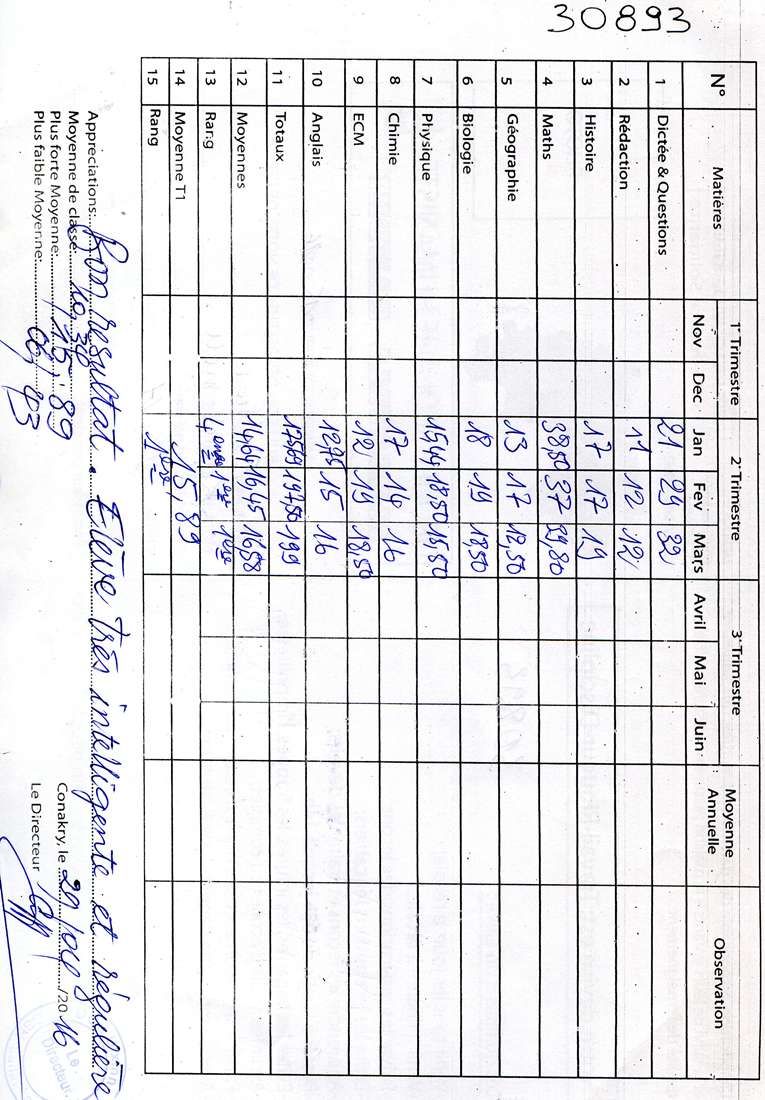 30893
N° Matières 1° Trimestre 2° Trimestre 3° Trimestre Moyenne Annuelle Observation
Nov Dec Jan Fev Mars Avril Mai Juin
1 Dictée & Questions 21 29 32
2 Rédaction 11 12 12
3 Histoire 17 17 19
4 Maths 38,50 37 39,80
5 Géographie 13 17 12,50
6 Biologie 18 19
7 Physique 15,44 18,50 15,50
8 Chimie 17 14 16
9 ECM 12 19 18,50
10 Anglais 12,75 15 16
11 Totaux 175,69 197,50 199
12 Moyennes 14,64 16,45 16,58
13 Rang 4eme 1ere 1ere
14 Moyenne T1 15,89
15 Rang 1ere
Appreciations: Bon resultat. Elève très intelligente et régulière
Moyenne de classe: 10,38
Plus forte Moyenne: 15,89
Plus faible Moyenne: 06,43
Conakry, le 29/04/2016
Le Directeur
Le
Directeur